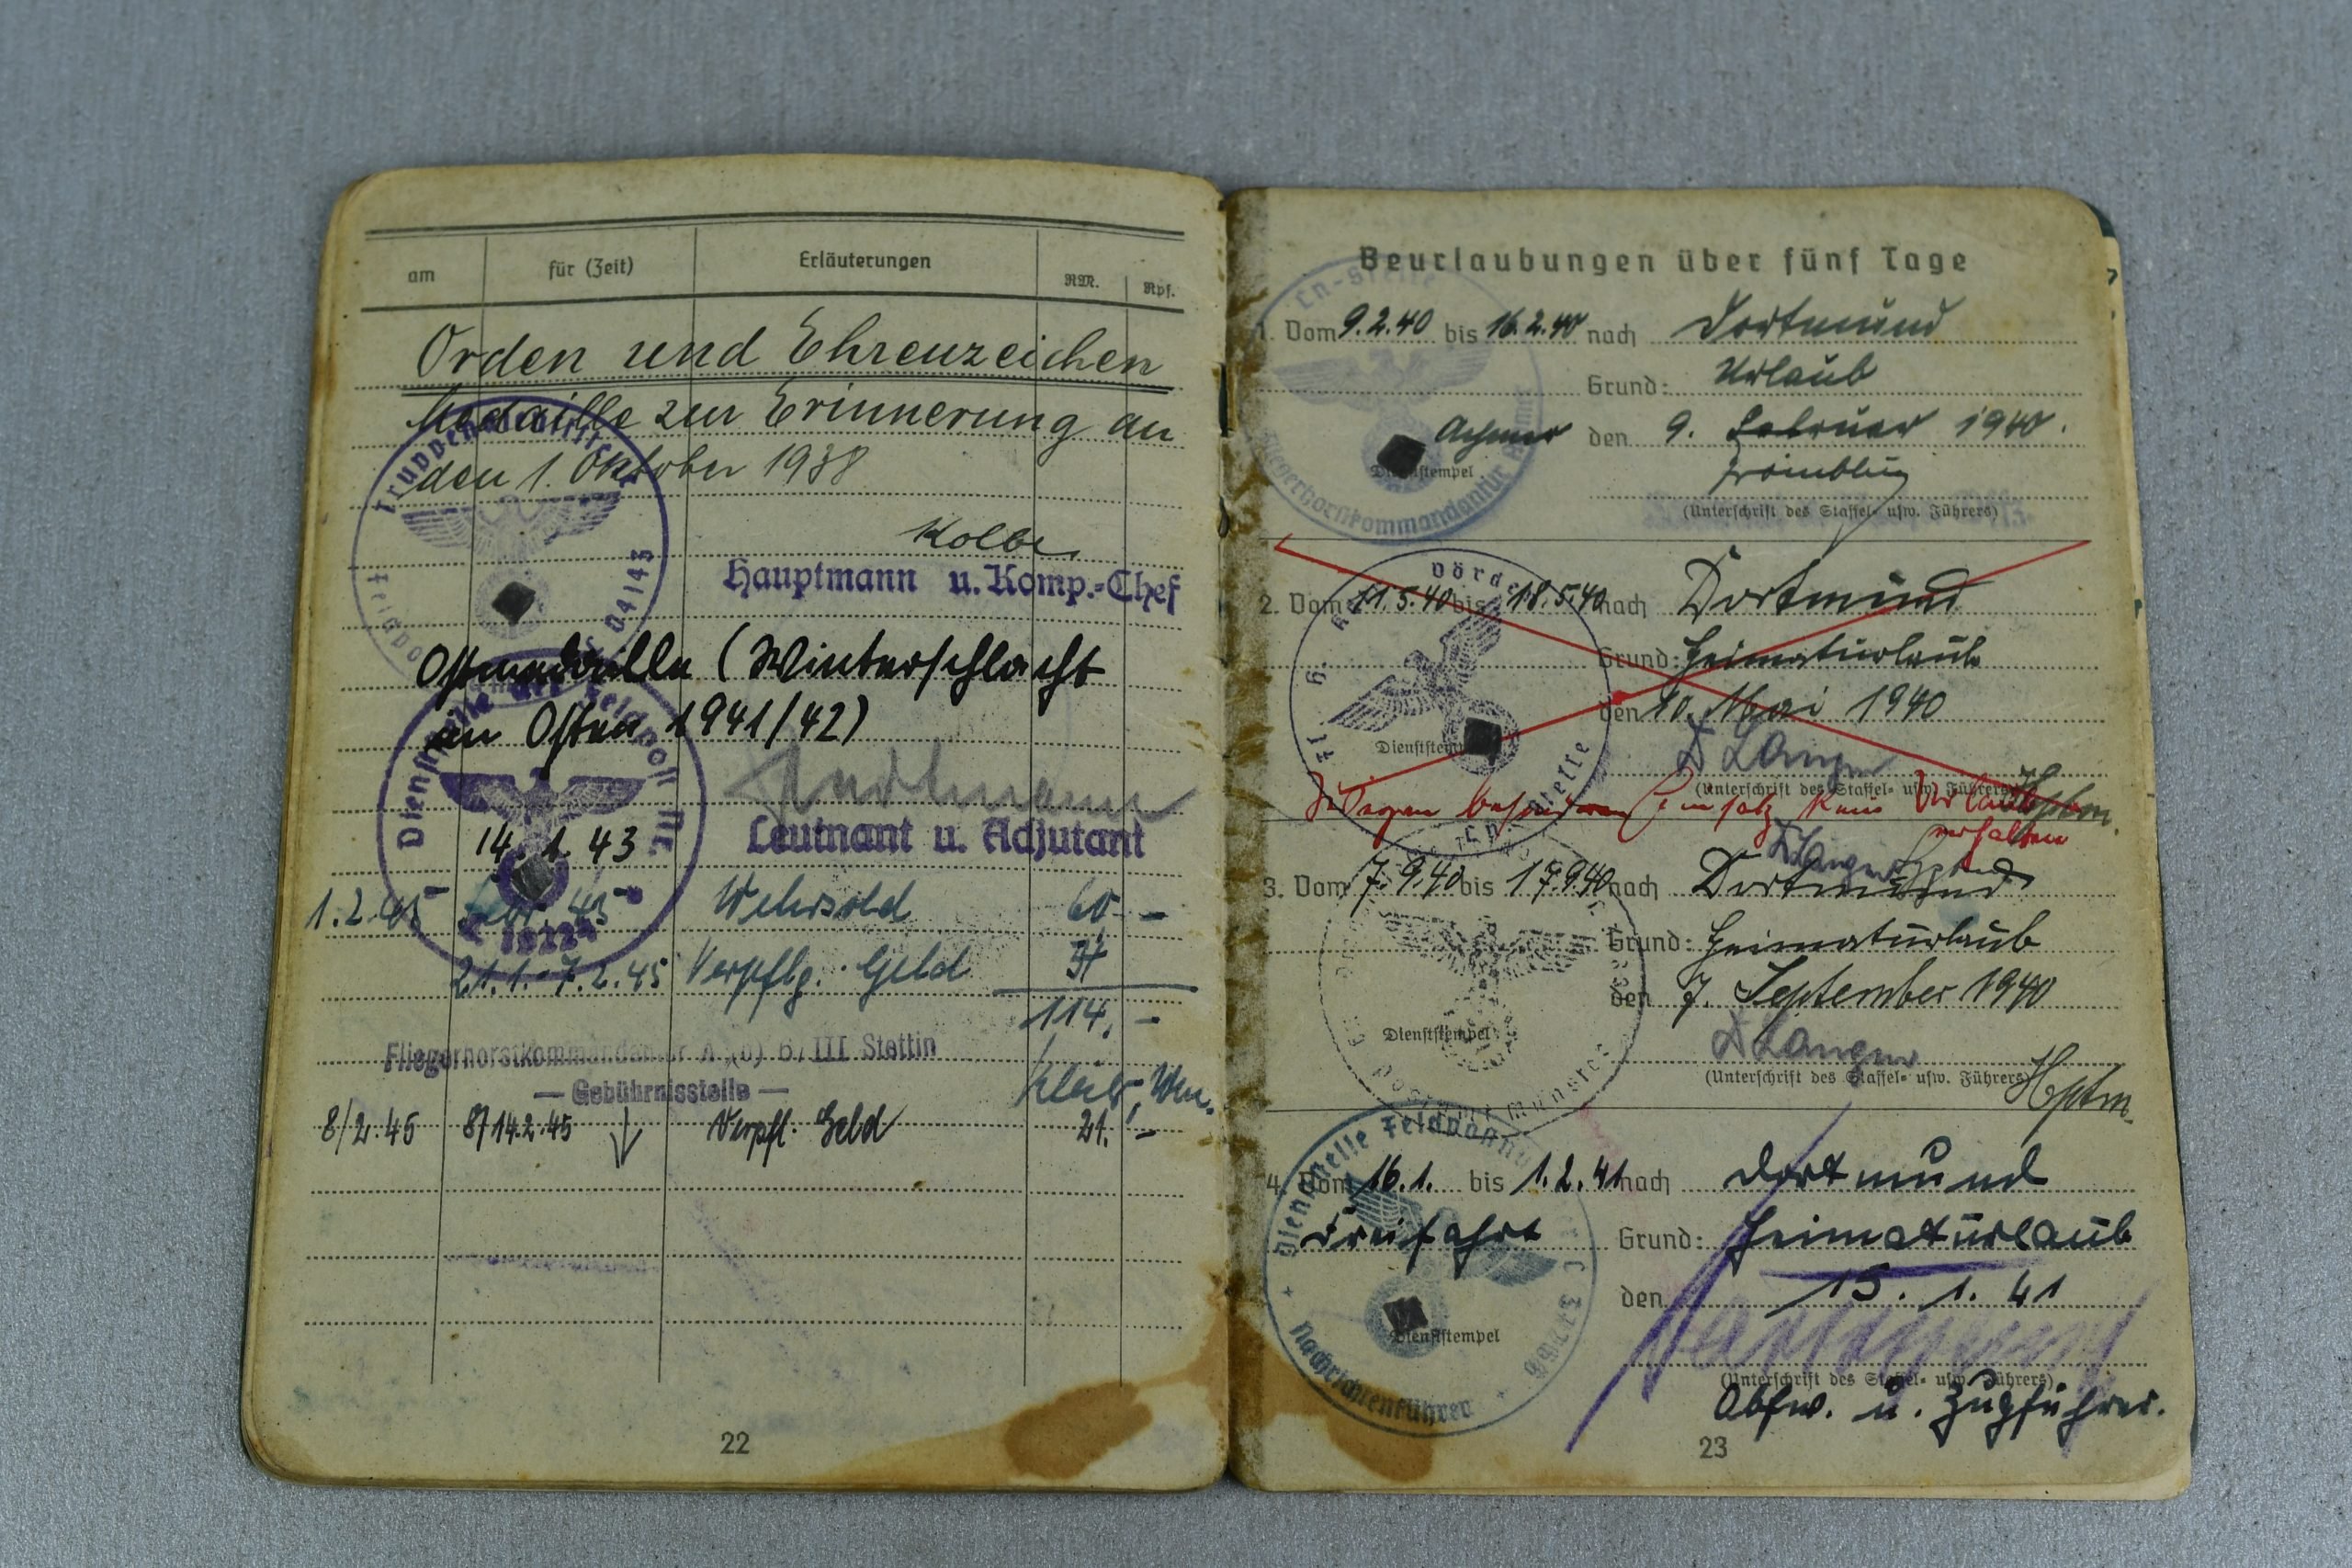 am für (Zeit) Erläuterungen RM. Rpf.
Orden und Ehrenzeichen
Medaille zur Erinnerung an
den 1. Oktober 1938
Truppen
04143
Kolbe
Hauptmann u. Komp.-Chef
Ostmedaille (Winterschlacht
im Osten 1941/42)
Dienststelle der Feldpost Nr.
Hartmann
Leutnant u. Adjutant
14. 1. 43
1.2.45 Febr. 45 Wehrsold 60 -
21.1.-7.2.45 Verpflg. Geld
114, -
Fliegerhorstkommandantur A (o) 6/III Stettin
— Gebührnisstelle —
8/2.45 8/14.2.45 Verpfl. Geld 21. -
22
Beurlaubungen über fünf Tage
Ln-Stelle
Fliegerhorstkommandantur
1. Vom 9.2.40 bis 16.2.40 nach Dortmund
Grund: Urlaub
Achmer den 9. Februar 1940.
Dienststempel
(Unterschrift des Staffel- usw. Führers)
2. Vom 11.5.40 bis 18.5.40 nach Dortmund
Grund: Heimaturlaub
den 10. Mai 1940
Dienststempel
Langer
(Unterschrift des Staffel- usw. Führers)
Hptm.
Wegen besonderen Einsatz kein Urlaub
erhalten
3. Vom 7.9.40 bis 17.9.40 nach Dortmund
Grund: Heimaturlaub
den 7. September 1940
Dienststempel
Langer
(Unterschrift des Staffel- usw. Führers)
Hptm.
Dienststelle Feldpostnummer
4. Vom 16.1. bis 1.2.41 nach Dortmund
Freifahrt Grund: Heimaturlaub
den 15. 1. 41
Dienststempel
Nachrichtenführer
(Unterschrift des Staffel- usw. Führers)
Obfw. u. Zugführer.
23